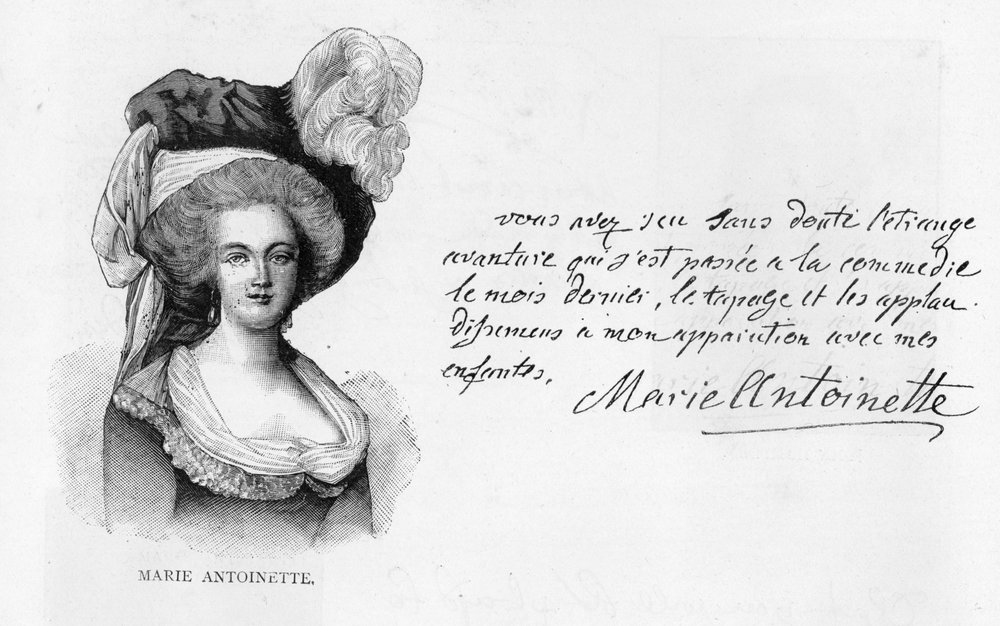 vous avez sçu sans doute l'etrange
avanture qui s'est passée a la commedie
le mois dernier, le tapage et les applau
dissemens a mon apparution avec mes
enfantes.
Marie Antoinette
MARIE ANTOINETTE,